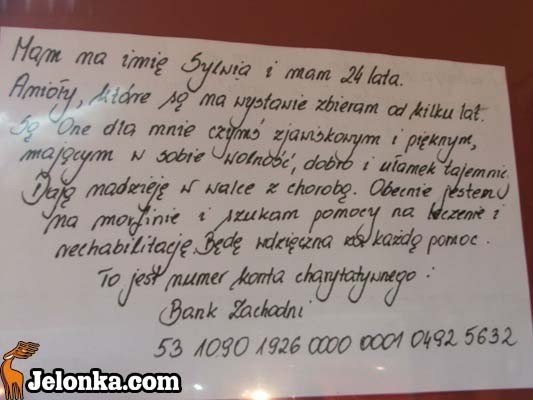 Mam na imię Sylwia i mam 24 lata.
Anioły, które są na wystawie zbieram od kilku lat.
Są One dla mnie czymś zjawiskowym i pięknym,
mającym w sobie wolność, dobro i ułamek tajemnic.
Dają nadzieję w walce z chorobą. Obecnie jestem
na morfinie i szukam pomocy na leczenie i
rechabilitację. Będę wdzięczna za każdą pomoc.
To jest numer konta charytatywnego:
Bank Zachodni
53 1090 1926 0000 0001 0492 5632
Jelonka.com